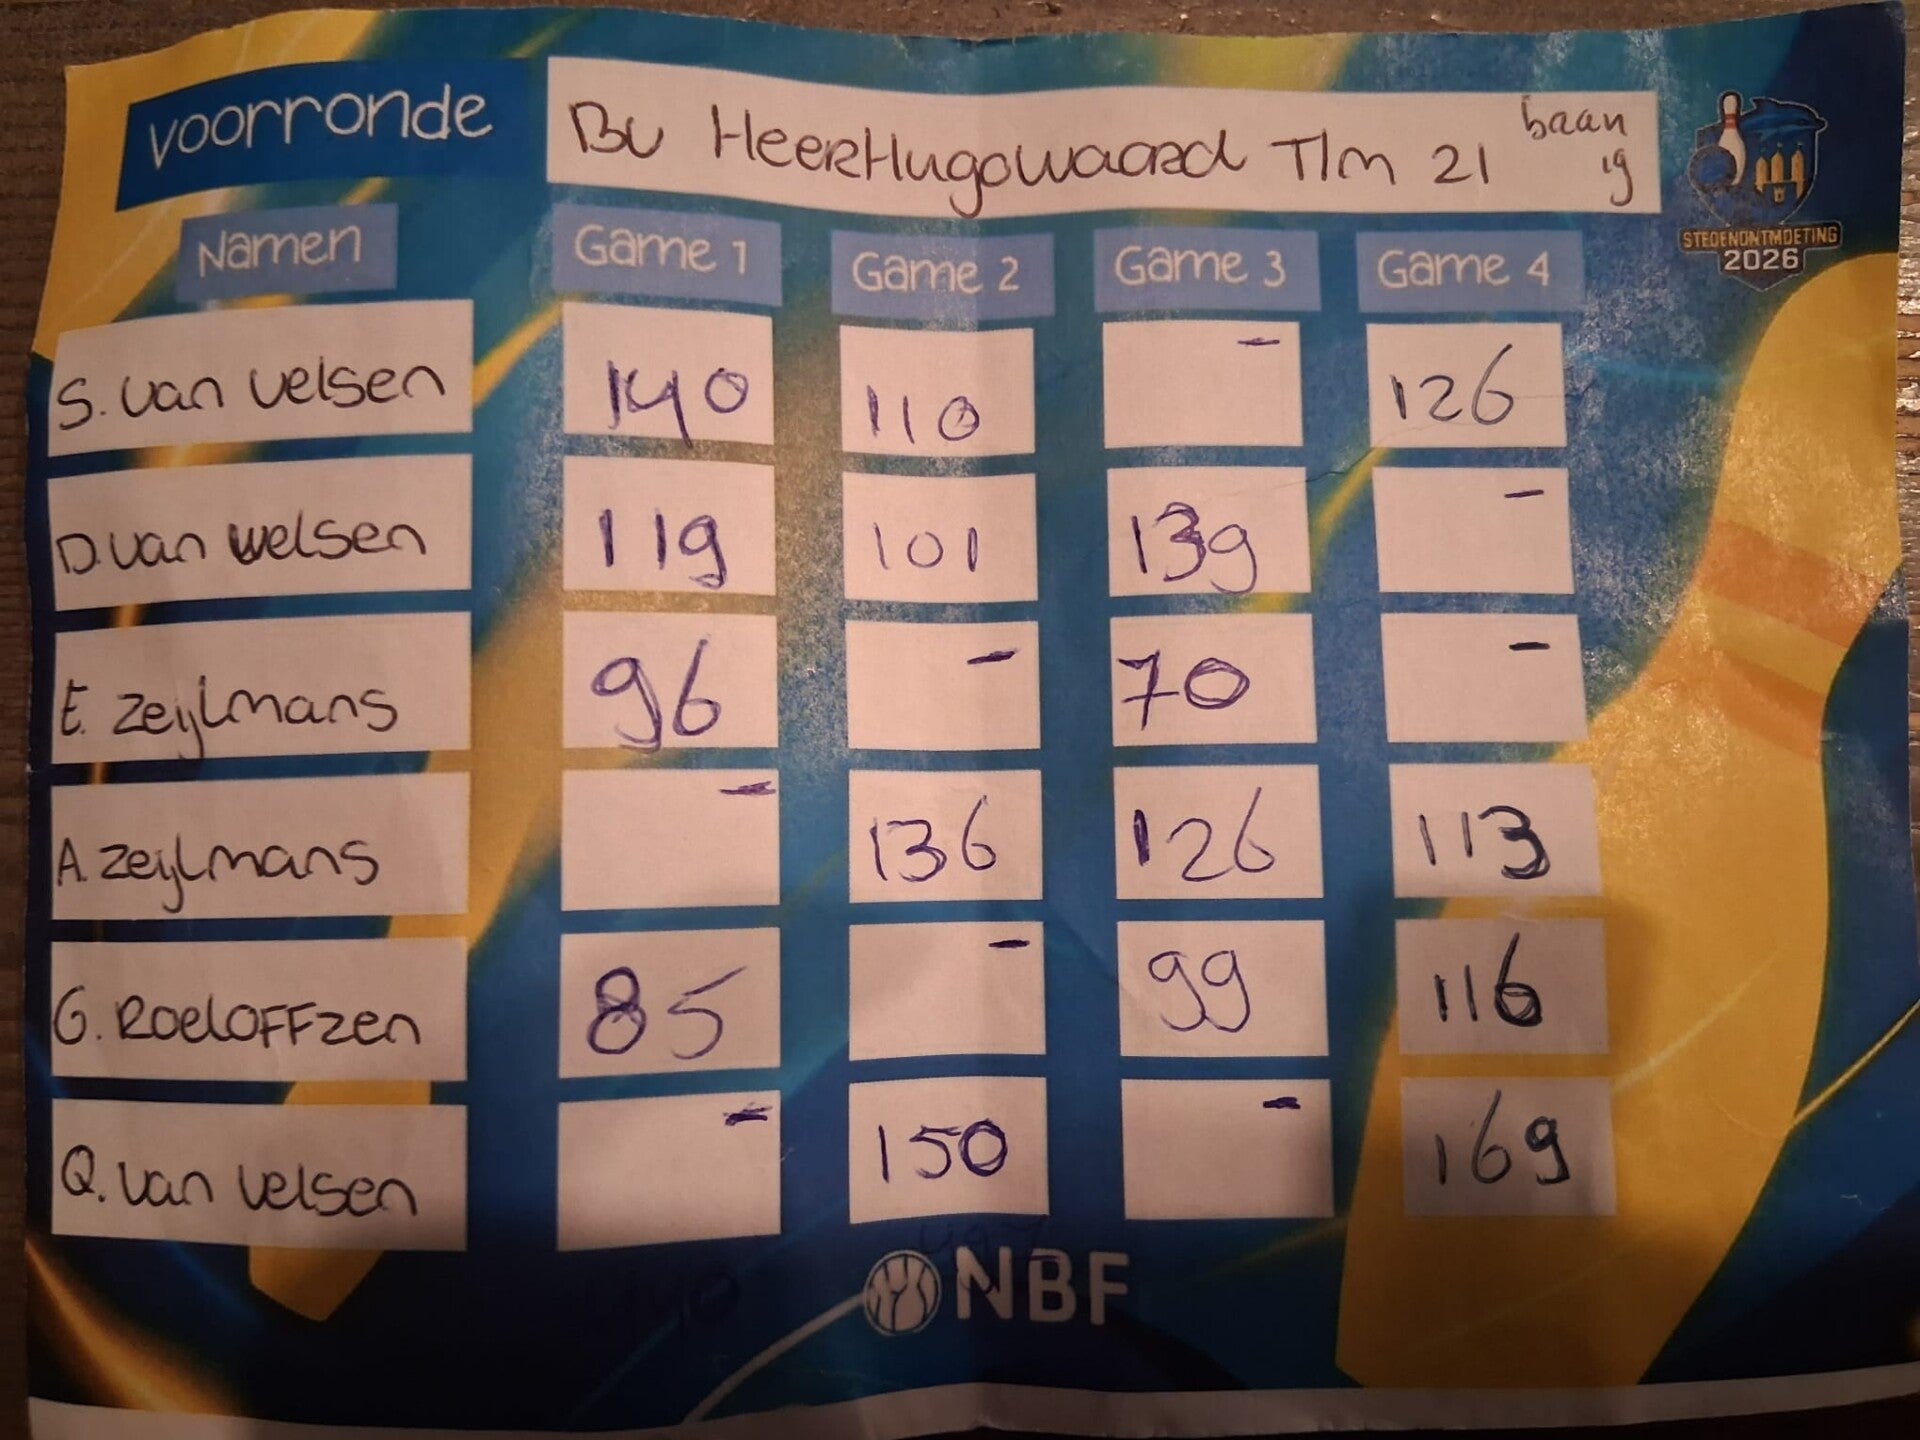 voorronde
BV HEERHugowaard T/m 21 baan 19
STEDENONTMOETING
2026
Namen Game 1 Game 2 Game 3 Game 4
S. van velsen 140 110 - 126
D. van velsen 119 101 139 -
E. zeijlmans 96 - 70 -
A. zeijlmans - 136 126 113
G. ROELOFFzen 85 - 99 116
Q. van velsen - 150 - 169
NBF